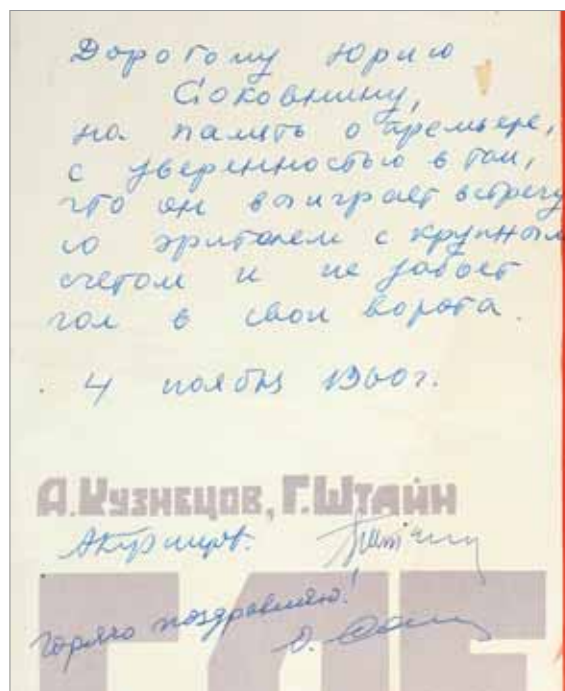 Дорогому Юрию
Соковнину,
на память о премьере,
с уверенностью в том,
что он выиграет встречу
со зрителем с крупным
счетом и не забьет
гол в свои ворота.
4 ноября 1960г.
А.Кузнецов, Г.Штайн
горячо поздравляю!
О.